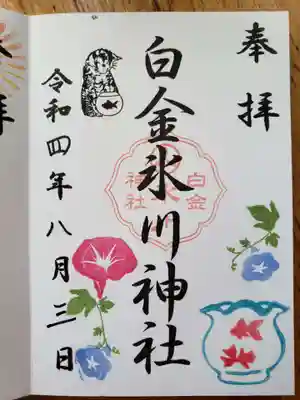 奉拝
白金氷川神社
白金
神社
令和四年八月三日
拝